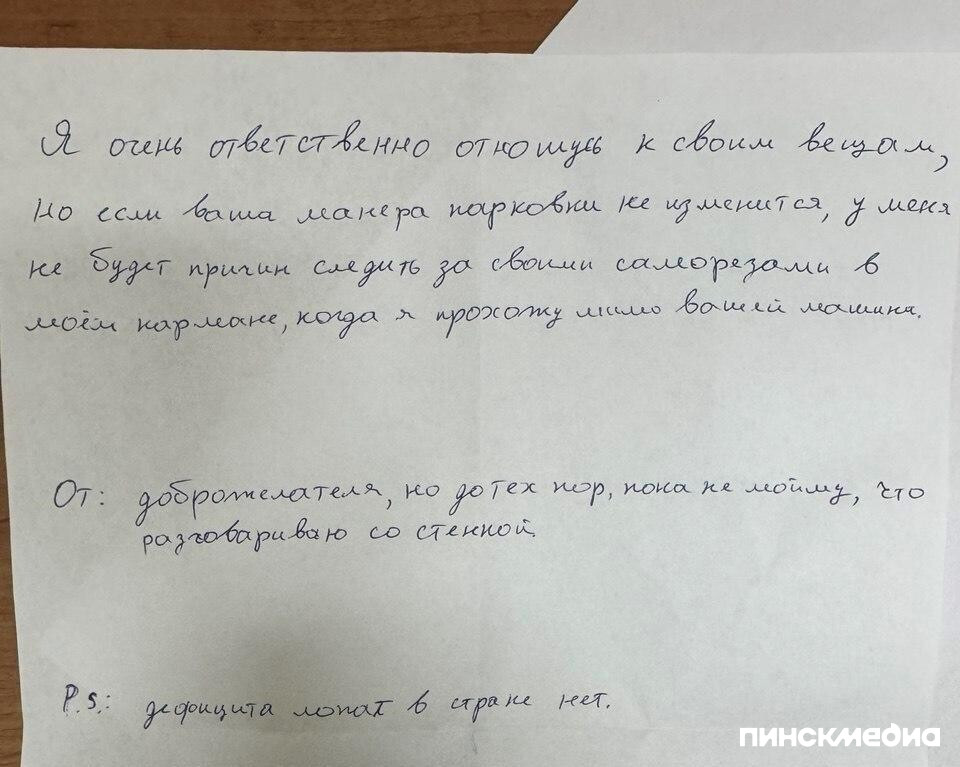 Я очень ответственно отношусь к своим вещам,
но если ваша манера парковки не изменится, у меня
не будет причин следить за своими саморезами в
моём кармане, когда я прохожу мимо вашей машины.
От: доброжелателя, но до тех пор, пока не пойму, что
разговариваю со стенной.
P.s.: дефицита лопат в стране нет.
ПИНСКМЕДИА